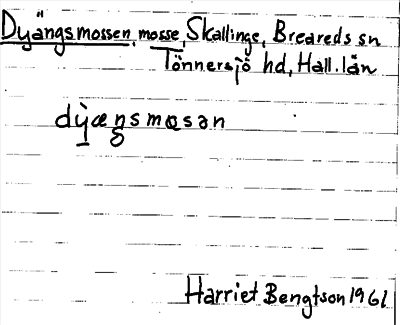 Dyängsmossen, mosse, Skallinge, Breareds sn
Tönnersjö hd, Hall. län
dỳængsmosən
Harriet Bengtson 1961